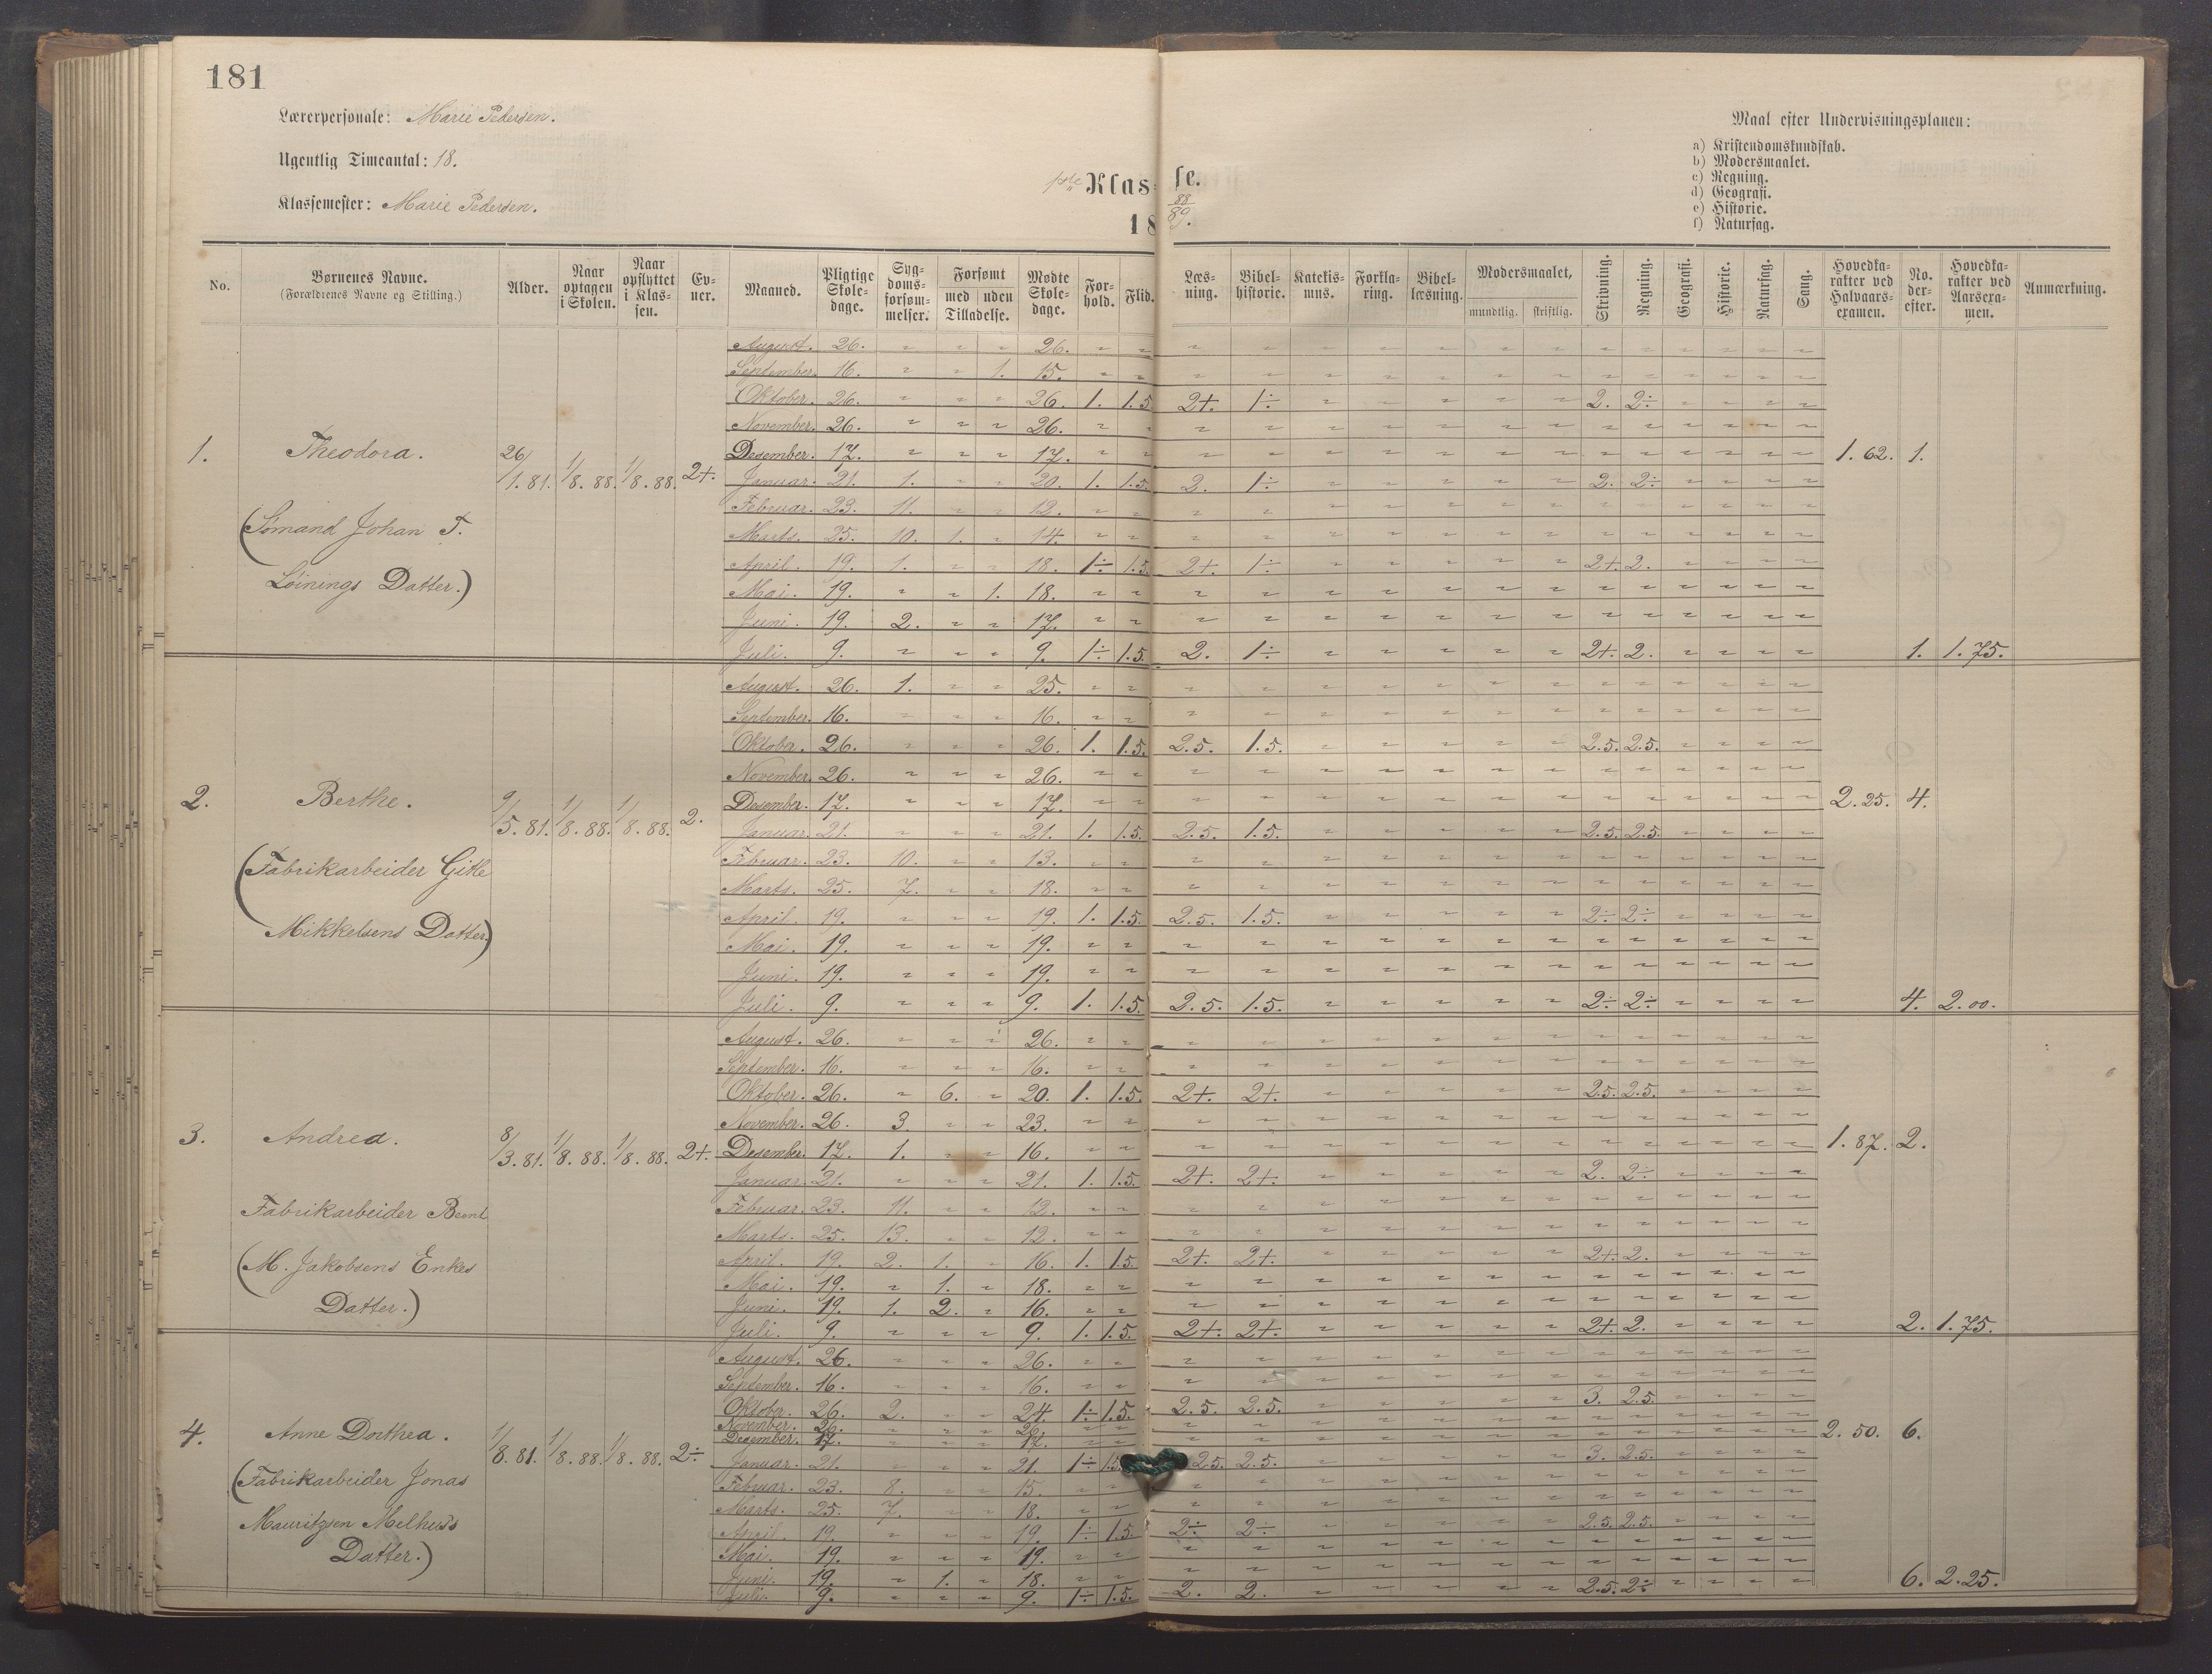 181
Lærerpersonale: Marie Pedersen.
Ugentlig Timeantal: 18.
Klassemester: Marie Pedersen.
1ste Klasse.
1888/89.
Maal efter Undervisningsplanen:
a) Kristendomskundskab.
b) Modersmaalet.
c) Regning.
d) Geografi.
e) Historie.
f) Naturfag.
No. Børnenes Navne. (Forældrenes Navne og Stilling.) Alder. Naar optagen i Skolen. Naar opflyttet i Klassen. Evner. Maaned. Pligtige Skoledage. Sygdomsforsømmelser. Forsømt med uden Tilladelse. Mødte Skoledage. Forhold. Flid. Læsning. Bibelhistorie. Katekismus. Forklaring. Bibellæsning. Modersmaalet, mundtlig. skriftlig. Skrivning. Regning. Geografi. Historie. Naturfag. Sang. Hovedkarakter ved Halvaarsexamen. No. derefter. Hovedkarakter ved Aarsexamen. Anmærkning.
1. Theodora. 26/1.81. 1/8.88. 1/8.88. 2+.
(Sømand Johan T.
Løinings Datter.)
August. 26. " " " 26. " "
September. 16. " " 1. 15. " "
Oktober. 26. " " " 26. 1. 1.5. 2+. 1÷ 2. 2÷
November. 26. " " " 26. " "
Desember. 17. " " " 17. " " 1.62. 1.
Januar. 21. 1. " " 20. 1. 1.5. 2. 1÷ 2. 2÷
Februar. 23. 11. " " 12. " "
Marts. 25. 10. 1. " 14. " "
April. 19. 1. " " 18. 1÷ 1.5. 2+. 1÷ 2+. 2.
Mai. 19. " " 1. 18. " "
Juni. 19. 2. " " 17. " "
Juli. 9. " " " 9. 1÷ 1.5. 2. 1÷ 2+. 2. 1. 1.75.
2. Berthe. 9/5.81. 1/8.88. 1/8.88. 2.
(Fabrikarbeider Gitle
Mikkelsens Datter)
August. 26. 1. " " 25. " "
September. 16. " " " 16. " "
Oktober. 26. " " " 26. 1. 1.5. 2.5. 1.5. 2.5. 2.5.
November. 26. " " " 26. " "
Desember. 17. " " " 17. " " 2.25. 4.
Januar. 21. " " " 21. 1. 1.5. 2.5. 1.5. 2.5. 2.5.
Februar. 23. 10. " " 13. " "
Marts. 25. 7. " " 18. " "
April. 19. " " " 19. 1. 1.5. 2.5. 1.5. 2÷ 2÷
Mai. 19. " " " 19. " "
Juni. 19. " " " 19. " "
Juli. 9. " " " 9. 1. 1.5. 2.5. 1.5. 2÷ 2÷ 4. 2.00.
3. Andrea. 8/3.81. 1/8.88. 1/8.88. 2+.
Fabrikarbeider Bernt
(M. Jakobsens Enkes
Datter.)
August. 26. " " " 26. " "
September. 16. " " " 16. " "
Oktober. 26. " 6. " 20. 1. 1.5. 2+. 2+. 2.5. 2.5.
November. 26. 3. " " 23. " "
Desember. 17. 1. " " 16. " " 1.87. 2.
Januar. 21. " " " 21. 1. 1.5. 2+. 2+. 2. 2÷
Februar. 23. 11. " " 12. " "
Marts. 25. 13. " " 12. " "
April. 19. 2. 1. " 16. 1. 1.5. 2+. 2+. 2+. 2.
Mai. 19. " 1. " 18. " "
Juni. 19. 1. 2. " 16. " "
Juli. 9. " " " 9. 1. 1.5. 2+. 2+. 2+. 2. 2. 1.75.
4. Anne Dorthea. 1/8.81. 1/8.88. 1/8.88. 2÷
(Fabrikarbeider Jonas
Mauritzsen Melhuus
Datter.)
August. 26. " " " 26. " "
September. 16. " " " 16. " "
Oktober. 26. 2. " " 24. 1÷ 1.5. 2.5. 2.5. 3. 2.5.
November. 26. " " " 26. " "
Desember. 17. " " " 17. " " 2.50. 6.
Januar. 21. " " " 21. 1÷ 1.5. 2.5. 2.5. 3. 2.5.
Februar. 23. 8. " " 15. " "
Marts. 25. 7. " " 18. " "
April. 19. " " " 19. 1÷ 1.5. 2÷ 2÷ 2.5. 2.5.
Mai. 19. " " " 19. " "
Juni. 19. " 1. " 18. " "
Juli. 9. " " " 9. 1÷ 1.5. 2. 2. 2.5. 2÷ 6. 2.25.